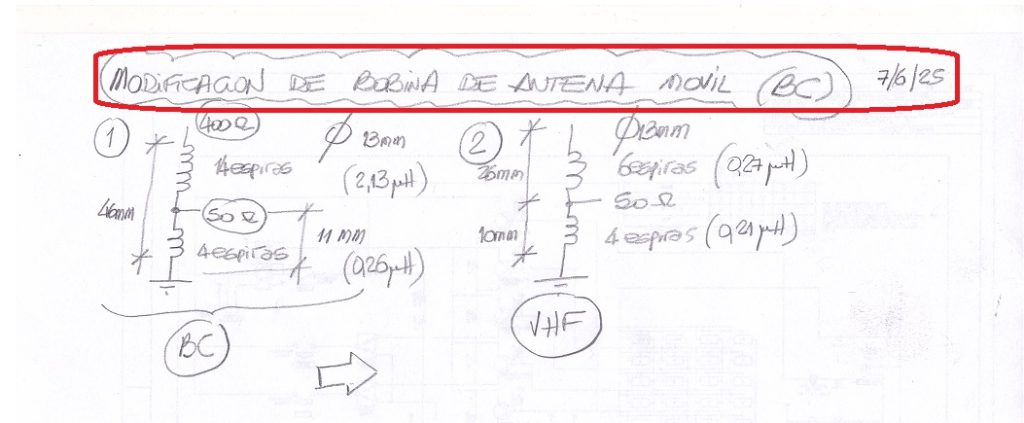 MODIFICACION DE BOBINA DE ANTENA MOVIL (BC) 7/6/25
1
400Ω
Ø 13mm
14espiras
(2,13μH)
46mm
50Ω
11 MM
4espiras
(0,26μH)
BC
2
Ø13mm
26mm
6espiras (0,27μH)
50Ω
10mm
4 espiras (0,21μH)
VHF